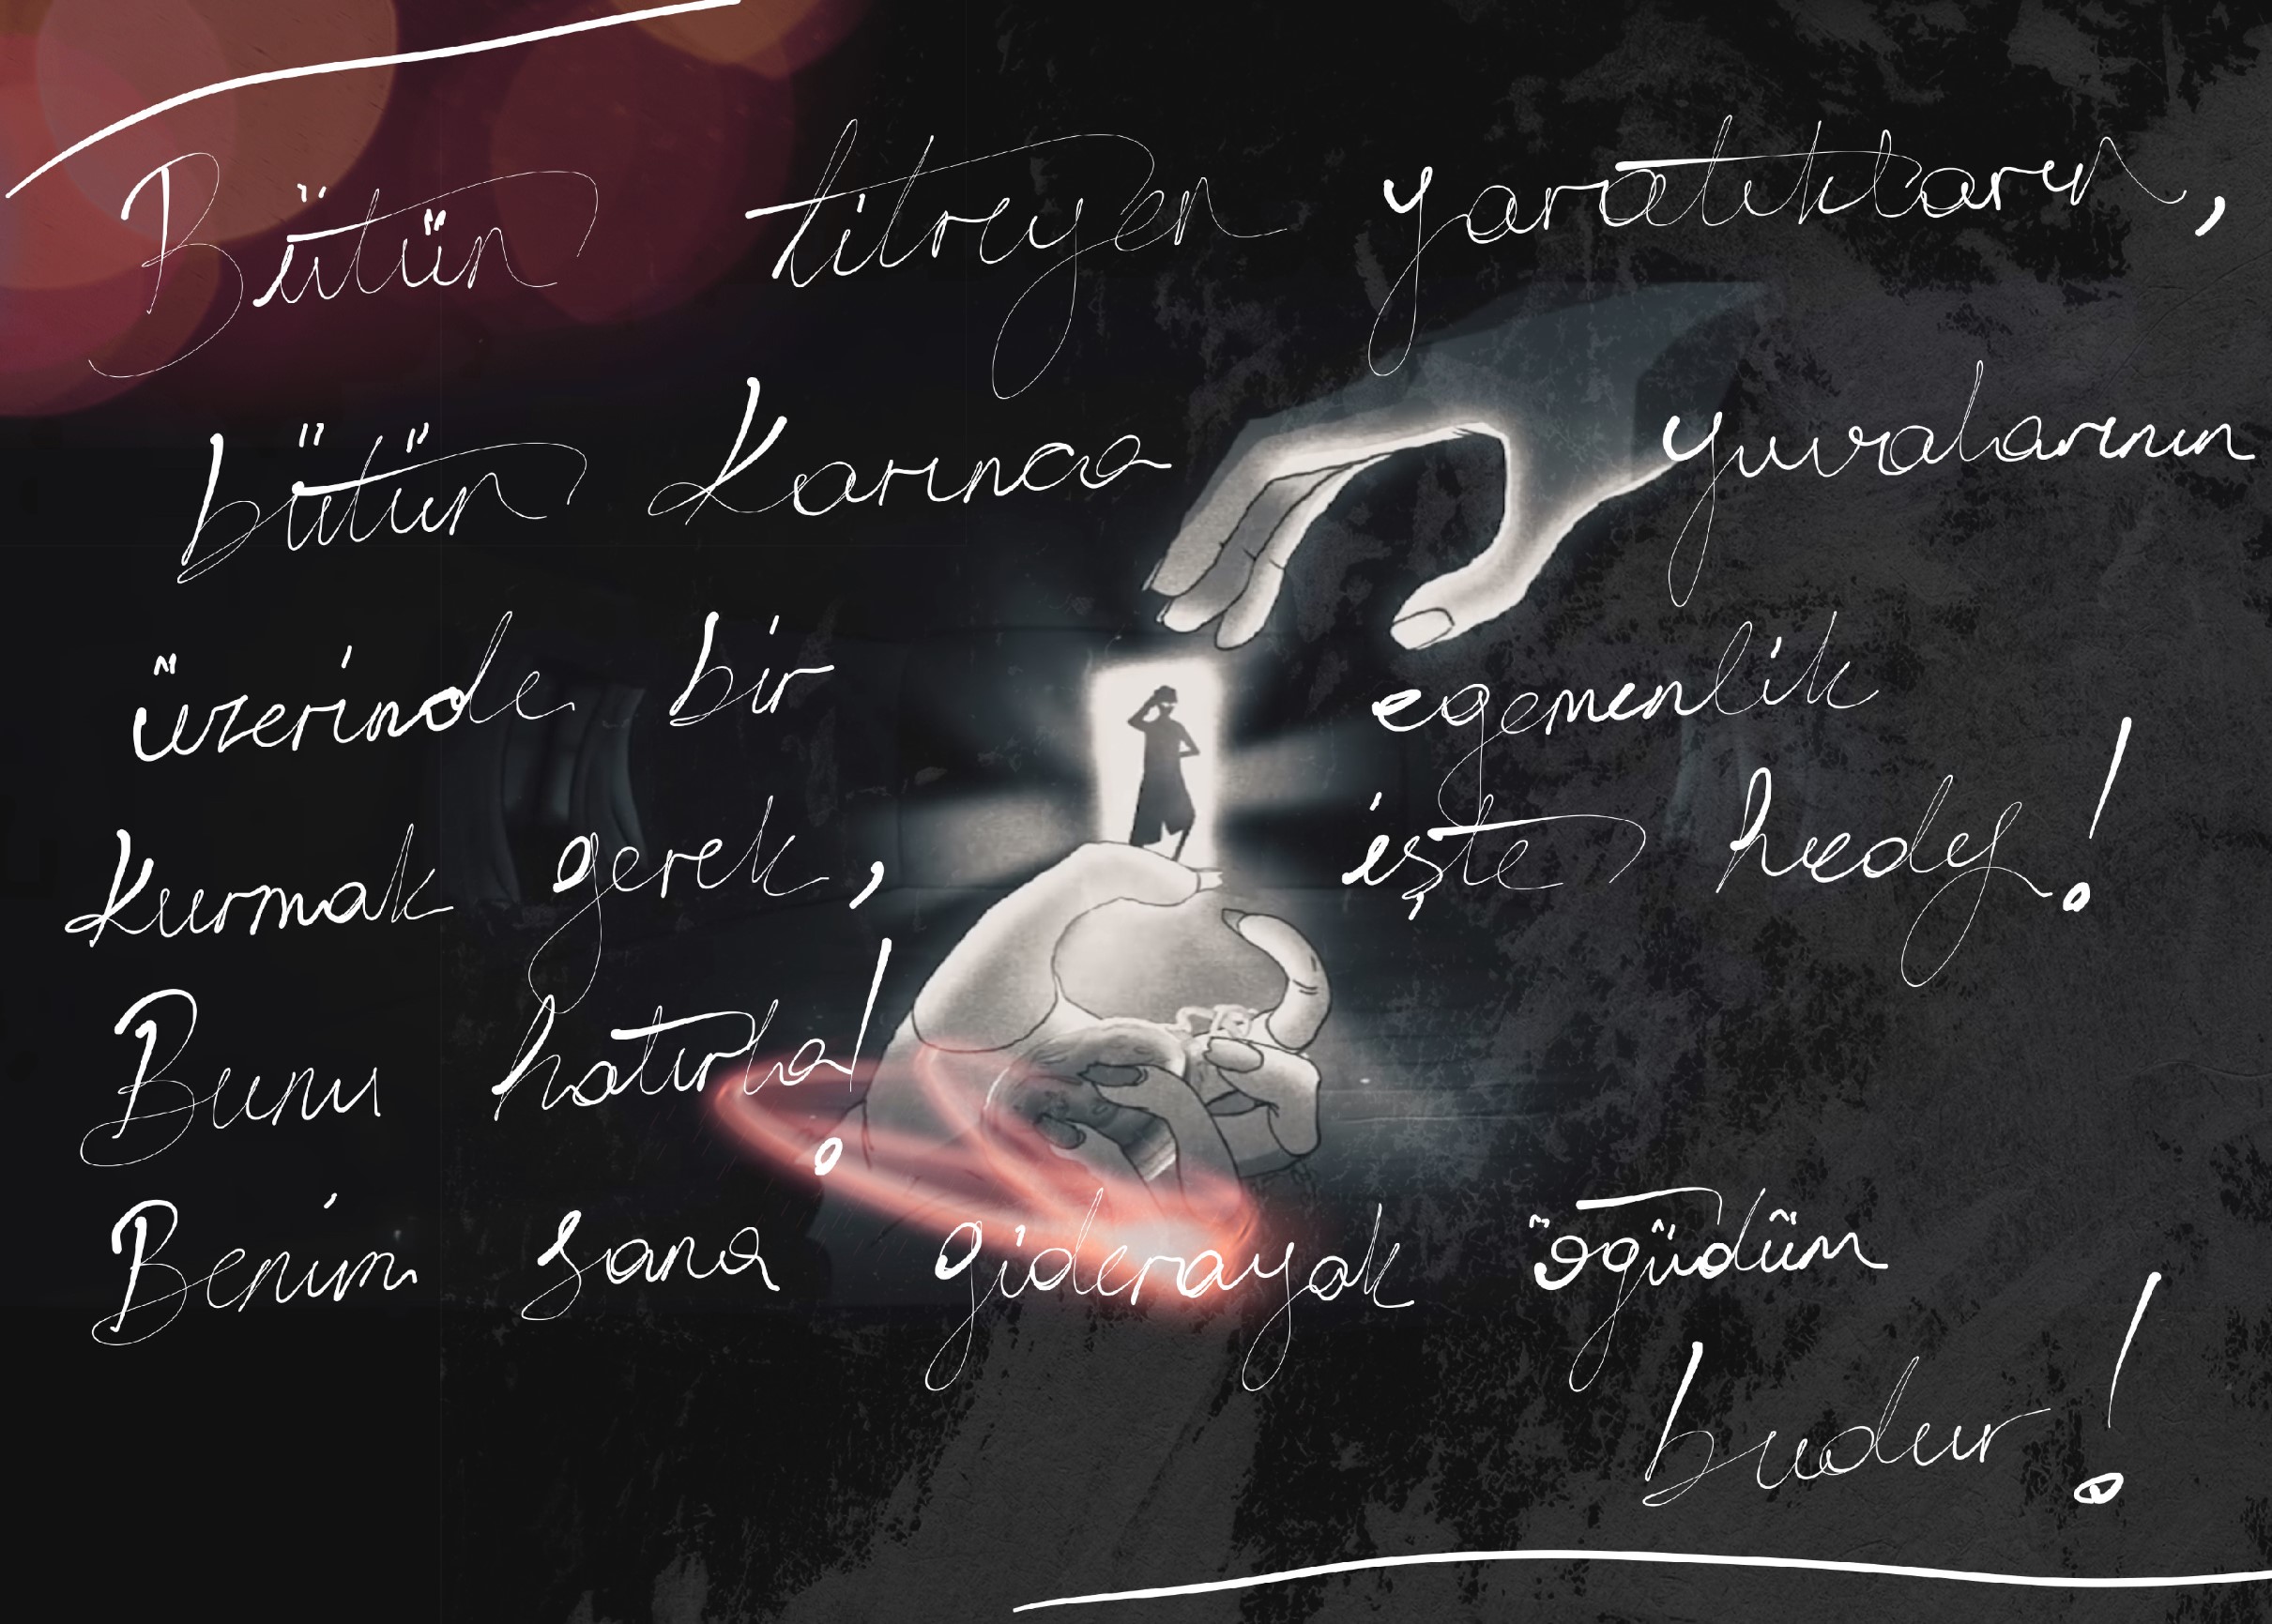 Bütün titreyen yaratıkların,
bütün Karınca yuvalarının
üzerinde bir egemenlik
Kurmak gerek, işte hedef!
Bunu hatırla!
Benim sana giderayak öğüdüm
budur!